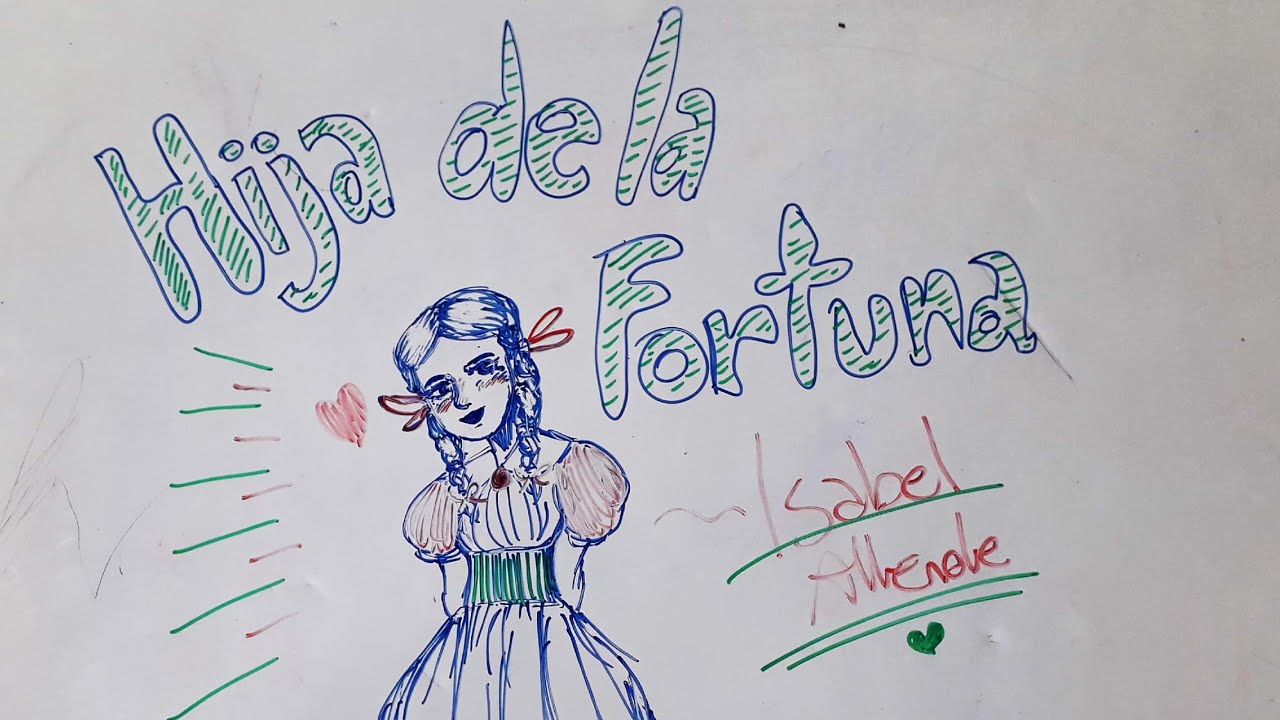 Hija de la
Fortuna
~ Isabel
Allende